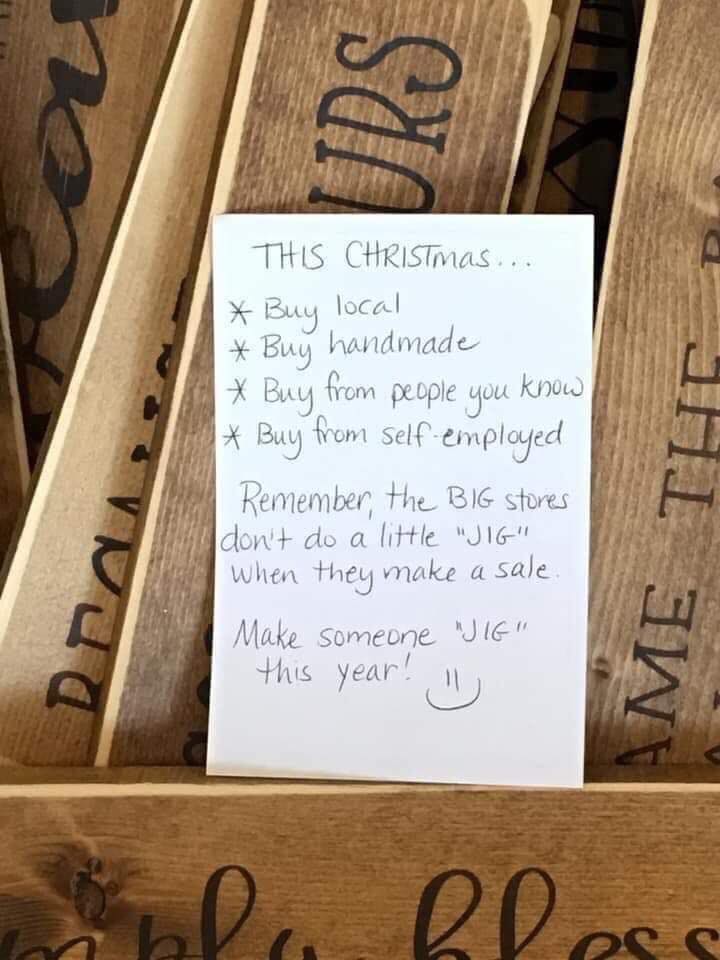 URS
THIS CHRISTmas...
* Buy local
* Buy handmade
* Buy from people you know
* Buy from self-employed
Remember, the BIG stores
don't do a little "JIG"
when they make a sale.
Make someone "JIG"
this year! =)
AME THE
mply bless